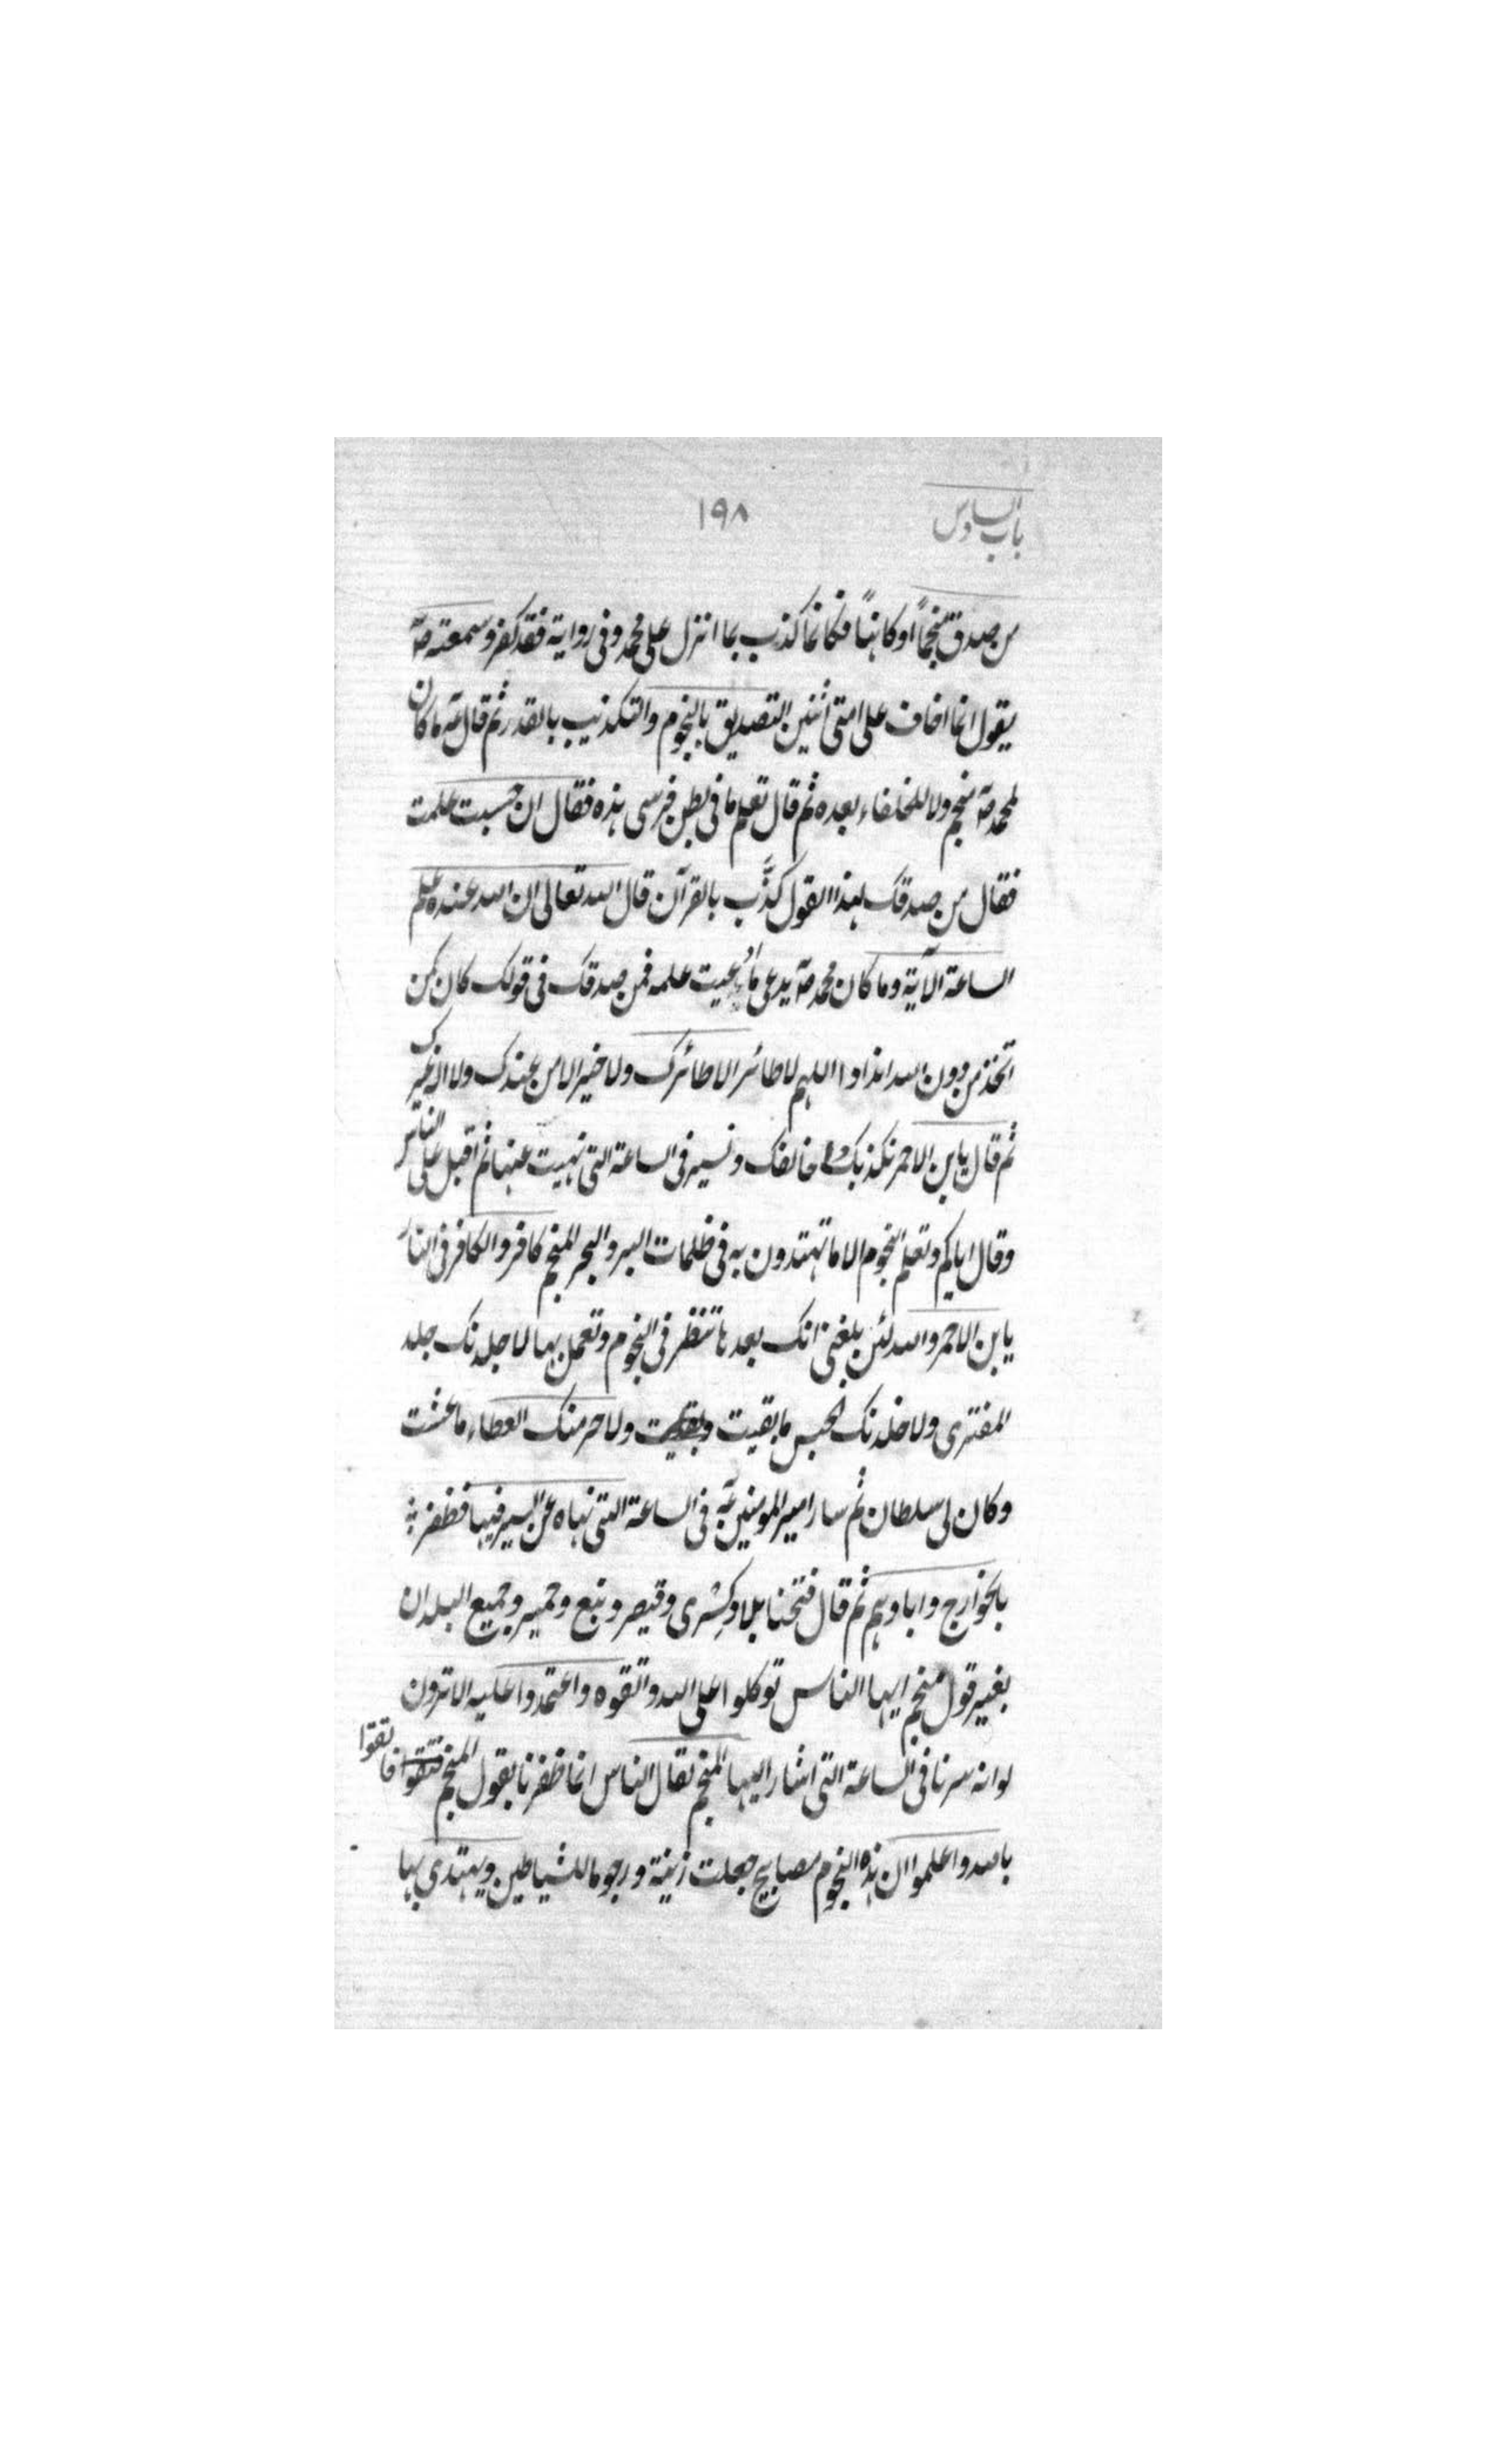 باب السادس
١٩٨
من صدق منجماً او كاهناً فكانما كذب بما انزل على محمد وفى رواية فقد كفر وسمعته صۤ
يقول انما اخاف على امتى اثنين التصديق بالنجوم والتكذيب بالقدر ثم قال عۤه ما كان
لمحمد صۤ منجم ولا للخلفاء بعده ثم قال تعلم ما فى بطن فرسى هذه فقال ان حسبت علمت
فقال من صدقك بهذا القول كذَّب بالقرآن قال الله تعالى ان الله عنده علم
الساعة الآية وما كان محمد صۤ يدعى ما ادعيت علمه فمن صدقك فى قولك كان كمن
اتخذ من دون الله اندادا اللهم لا طائر الا طائرك ولا خير الا من عندك ولا اله غيرك
ثم قال يابن الاحمر نكذبك و خالفك ونسير فى الساعة التى نهيت عنها ثم اقبل على الناس
وقال اياكم وتعلم النجوم الا ما تهتدون به فى ظلمات البر والبحر المنجم كافر والكافر فى النار
يا بن الاحمر والله لئن بلغنى انك بعدها تنظر فى النجوم وتعمل بها لاجلدنك جلد
المفترى ولاخلدنك الحبس ما بقيت وبقيت ولاحرمنك العطاء ما عشت
وكان لى سلطان ثم سار امير المومنين عۤه فى الساعة التى نهاه عن السير فيها فظفر
بالخوارج واباوهم ثم قال فتحنا بلاد كِسْرى وقيصر وتبع وحمير وجميع البلدان
بغير قول منجم ايها الناس توكلوا على الله واتقوه واعتمدوا عليه الا ترون
لوانه سرنا فى الساعة التى اشار اليها المنجم لقال الناس انما ظفرنا بقول المنجم فثقوا فاتقوا
بالله واعلموا ان هذه النجوم مصابيح جعلت زينة ورجوما للشياطين ويهتدى بها